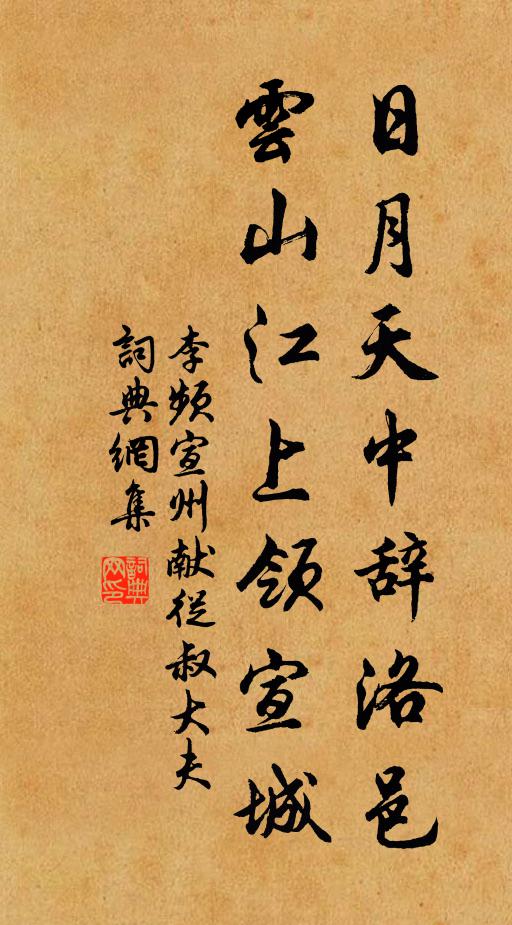 日月天中辞洛邑
雲山江上領宣城
李频宣州献從叔大夫
詞典網集
詞典网印